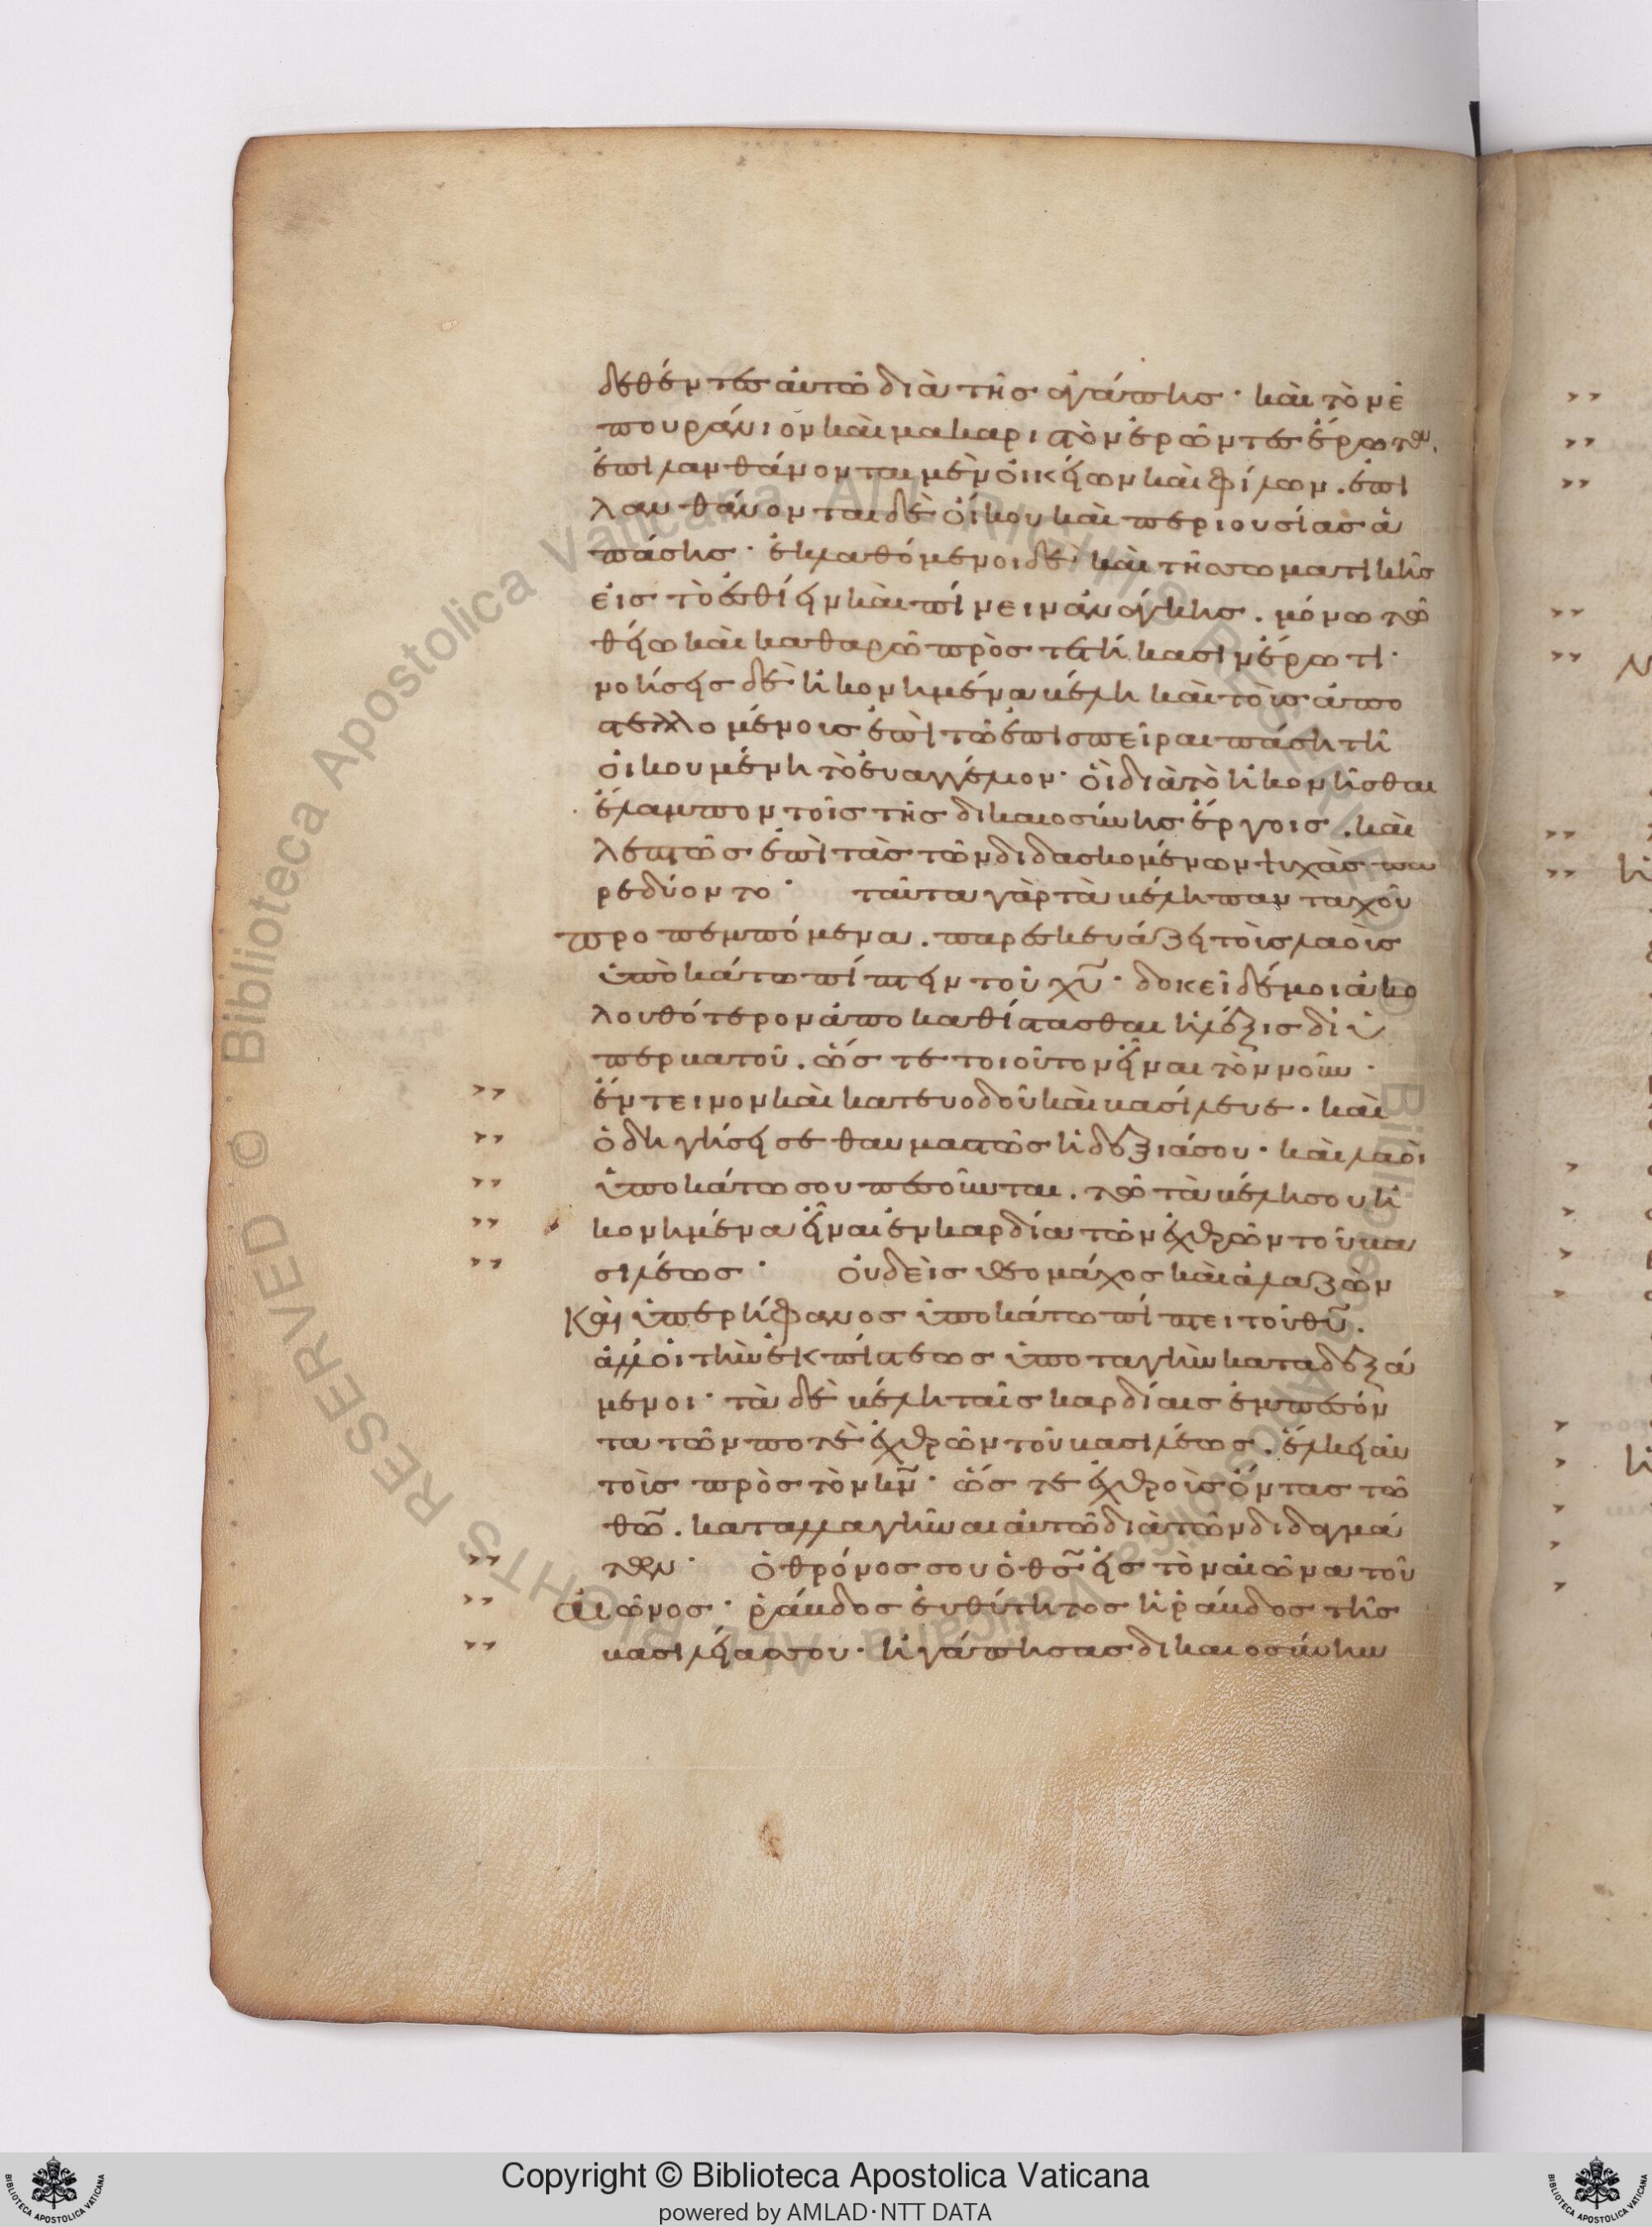 δεθέντες αὐτῶ διὰ τῆς ἀγάπης· καὶ τὸν ἐ
πουράνιον καὶ μακαριστὸν ἐρῶντες ἔρωτα.
ἐπιλανθάνονται μὲν οἰκείων καὶ φίλων. ἐπι
λανθάνονται δὲ οἴκου καὶ περιουσίας ἁ
πάσης· ἐκλαθόμενοι δὲ καὶ τῆς σωματικῆς
εἰς τὸ ἐσθίειν καὶ πίνειν ἀνάγκης. μόνω τῶ
θείω καὶ καθαρῶ προστετήκασιν ἔρωτι·
νοήσεις δὲ ἠκονημένα βέλη καὶ τοῖς ἀπο
στελλομένοις ἐπὶ τῶ ἐπισπεῖραι πάση τῆ
οἰκουμένη τὸ εὐαγγέλιον· οἳ διὰ τὸ ἠκονῆσθαι
ἔλαμπον τοῖς τῆς δικαιοσύνης ἔργοις. καὶ
λεπτῶς ἐπὶ τὰς τῶν διδασκομένων ψυχὰς πα
ρεδύοντο· ταῦτα γὰρ τὰ βέλη πανταχοῦ
προπεμπόμενα. παρεσκευάζει τοὺς λαοὺς
ὑποκάτω πίπτειν τοῦ χυ· δοκεῖ δέ μοι ἀκο
λουθότερον ἀποκαθίστασθαι ἡ λέξις δι ὑ
περβατοῦ. ὥς τε τοιοῦτον εἶναι τὸν νοῦν·
" ἔντεινον καὶ κατευοδοῦ καὶ βασίλευε· καὶ
" ὁδηγήσει σε θαυμαστῶς ἡ δεξιά σου· καὶ λαοὶ
" ὑποκάτω σου πεσοῦνται. τῶ τὰ βέλη σου ἠ
" κονημένα εἶναι ἐν καρδία τῶν ἐχθρῶν τοῦ βα
" σιλέως· οὐδεὶς θεομάχος καὶ ἀλαζὼν
καὶ ὑπερήφανος ὑποκάτω πίπτει τοῦ θυ.
ἀλλ' οἱ τὴν ἐκ πίστεως ὑποταγὴν καταδεξά
μενοι· τὰ δὲ βέλη ταῖς καρδίαις ἐμπεσόν
τα τῶν ποτὲ ἐχθρῶν τοῦ βασιλέως. ἕλκει αὐ
τοὺς πρὸς τὸν κν· ὥς τε ἐχθροὺς ὄντας τῶ
θω. καταλλαγῆναι αὐτῶ διὰ τῶν διδαγμά
" των· ὁ θρόνος σου ὁ θς εἰς τὸν αἰῶνα τοῦ
" αἰῶνος· ῥάβδος εὐθύτητος ἡ ῥάβδος τῆς
" βασιλείας σου· ἠγάπησας δικαιοσύνην
Copyright © Biblioteca Apostolica Vaticana
powered by AMLAD·NTT DATA